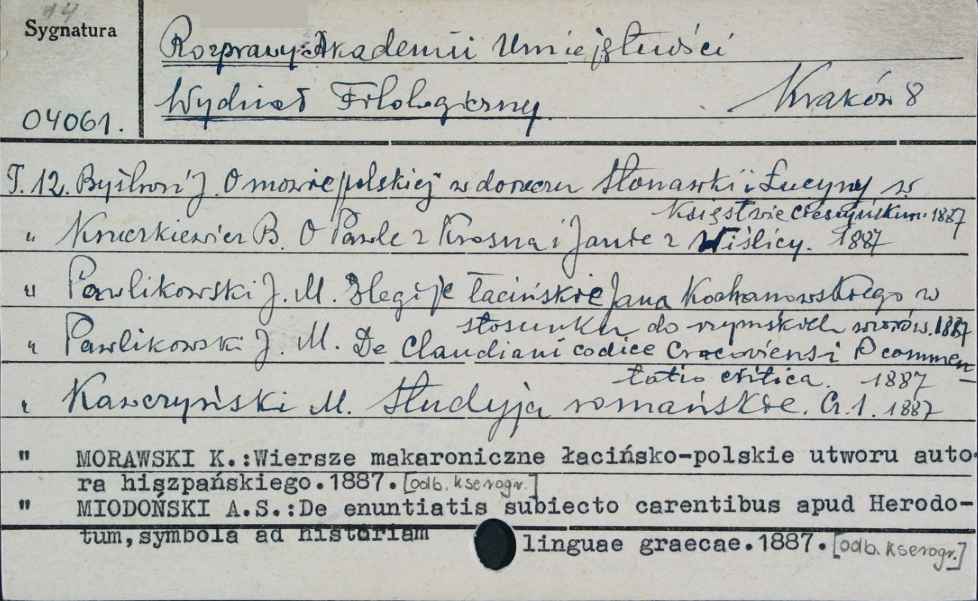 14
Sygnatura
Rozprawy Akademii Umiejętności
Wydział Filologiczny. Kraków 8
04061.
T. 12. Bystroń J. O mowie polskiej w dorzeczu Stonawki i Łucyny w
Księstwie cieszyńskim. 1887
" Kruczkiewicz B. O Pawle z Krosna i Janie z Wiślicy. 1887
" Pawlikowski J. M. Elegije łacińskie Jana Kochanowskiego w
stosunku do rzymskich wzorów. 1887
" Pawlikowski J. M. De Claudiani codice Cracoviensi Pcommen-
tatio critica. 1887
" Kawczyński M. Studyja romańskie. Cz. 1. 1887
" MORAWSKI K.:Wiersze makaroniczne łacińsko-polskie utworu auto-
ra hiszpańskiego.1887. [odb. kserogr.]
" MIODOŃSKI A.S.:De enuntiatis subiecto carentibus apud Herodo-
tum,symbola ad historiam linguae graecae.1887. [odb. kserogr.]